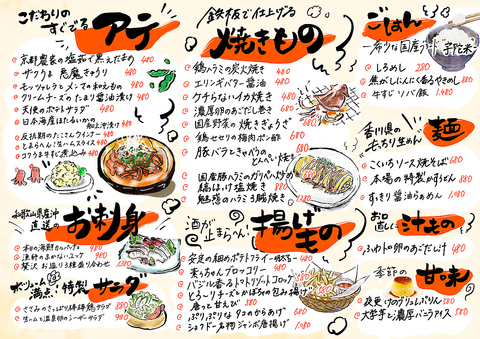 こだわりの
すぐでる
アテ
京都農家の塩茹で黒えだまめ 480
ザクうま 悪魔きゅうり
モッツァレラとメンマの和えもの 480
クリームチーズのたまり醤油漬け 480
天使のポテトサラダ 480
日本海産ほたるいかの
沖漬け 480
反抗期のたこさんウインナー 580
とまらん!生ハムスライス 580
コクうま牛すじ煮込み 680
和歌山県産沖
直送の
お刺身
本日の海鮮カルパッチョ 980
漁師のまかないユッケ 980
贅沢 お造り3種盛り合わせ
ボリューム
満点!特製
サラダ
ささみのさっぱり棒棒鶏サラダ 580
生ハムと温泉卵のシーザーサラダ 780
鉄板で仕上げる
焼きもの
鶏ハラミの炭火焼き 480
エリンギバター醤油 480
クチらないイカ焼き 480
濃厚卵のあごだし巻き 580
国産野菜の焼きぎょうざ 580
鶏セセリの梅肉ポン酢 680
豚バラとキャベツの
とんぺい焼き 680
国産豚ハラミのガリペパ炒め 680
縞ほっけ塩焼き 880
魅惑のハラミ3種焼き
酒が
止まらへん!
揚げもの
安定の細めポテトフライ 480
茎っちょんブロッコリー 480
バジル香るトマトリゾットコロッケ 580
とろ~りチーズとかぼちゃの包み揚げ 580
唐っと甘えび 580
ぷりぷりな タコのからあげ 680
ショウドー名物ジャンボ唐揚げ
ごはん
しろめし 280
焦がしにんにく香るやきめし 880
牛すじソバ飯
香川県の
もっちり生めん
麺
こいくちソース焼そば 680
本場の特製かすうどん 880
すっきり醤油らぁめん
お口
直しに
汁もの
ふわトロ卵のあごだし汁 480
季節の
甘味
夜更けのクリームぷりん 580
大学芋と濃厚バニラアイス 580